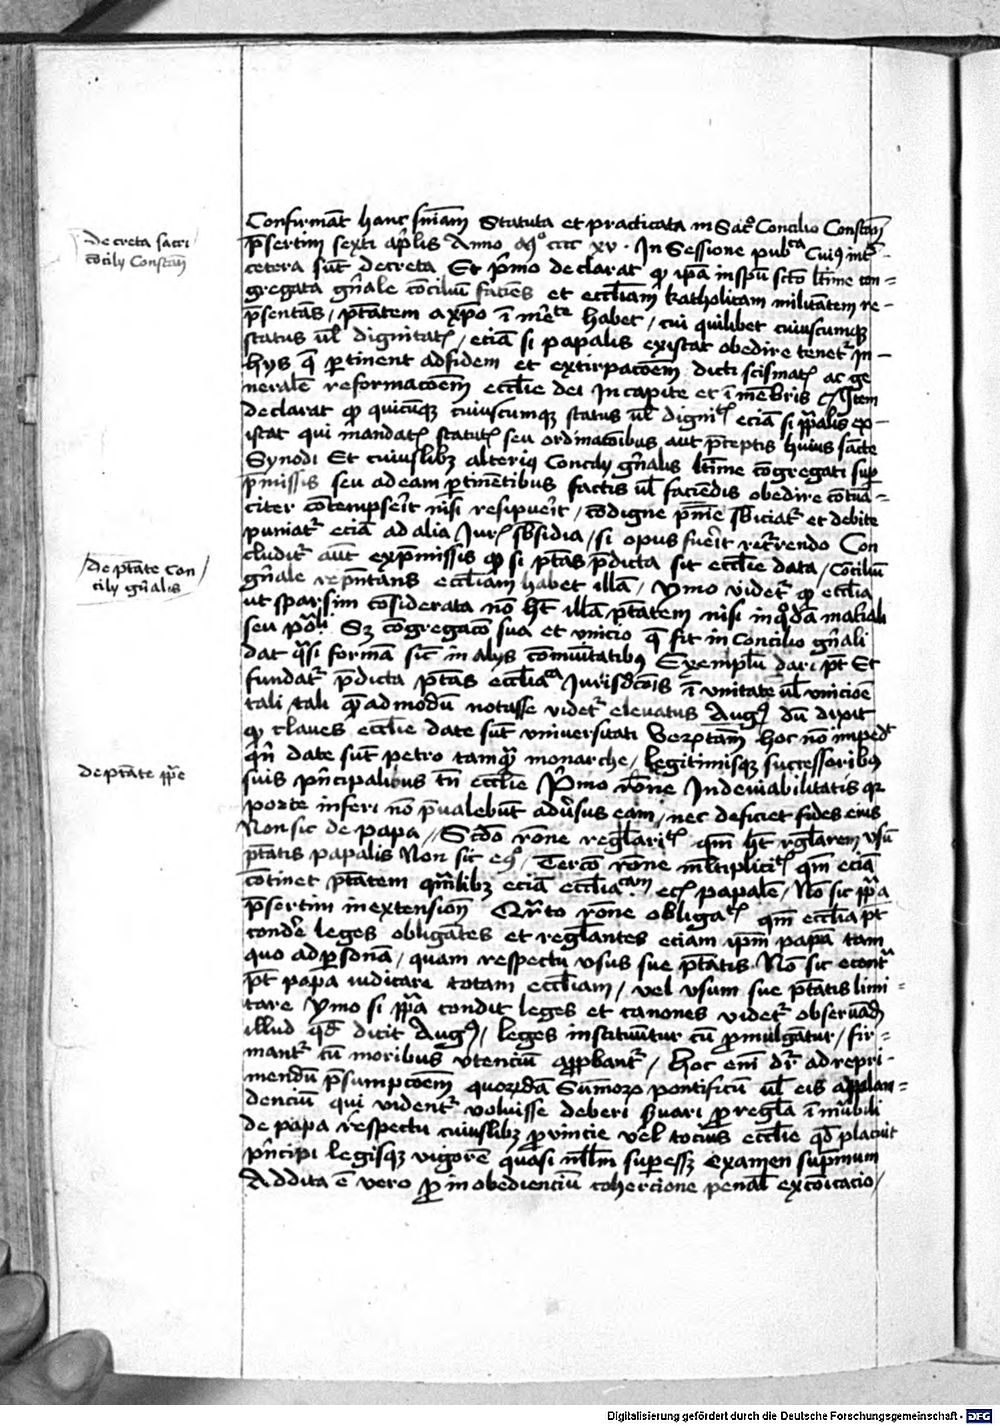 decreta sacri
cōcily Constañ
Confirmāt hanc sniām Statuta et practicata in Sacº Concilio Constañ
p̄sertim sexti ap̄lis Anno Mº cccc xv. In Sessione pubᶜᵃ Cuiꝰ intᵉ
cetera sūt decreta Et p̄mo declarat qᵈ ip̄a in sp̄u scto lt̄ime con=
gregata gn̄ale cōciliū faciēs et eccl̄iam katholicam militātem re-
p̄sentās / ptātem a xp̄o īmētᵉ habet / cui quilibet cuiuscumqꝫ
status ul̄ dignitatꝭ / eciā si papalis existat obedire tenetᵉ in-
hys q̄ ꝑtinent ad fidem et extirpacōem dicti scismatꝭ ac ge
neralē reformacōem eccl̄ie dei In capite et ī mēbris Itēm
declarat qᵈ quicūqꝫ cuiuscumqꝫ status ul̄ dignitꝭ eciā si pp̄alis ex-
istat qui mandatꝭ statutꝭ seu ordinacōibus aut p̄ceptis huius sacte
Synodi Et cuiuslibꝫ alteriꝰ Concily gn̄alis lt̄ime cōgregati suꝑ
p̄missis seu ad eam ꝑtinētibus factis ul̄ faciēdis obedire cōtūa=
citer cōtempserīt nisi resipuerīt / cōdigne pn̄ie sbiciatᵉ et debite
puniatᵉ eciā ad alia Jurꝭ sbsidia / si opus fuerīt recᵉrendo Con
cluditᵉ aut̄ ex p̄missis qᵈ si ptās p̄dicta sit eccl̄ie data / Cōciliū
de ptāte Con
cily gn̄alis
gn̄ale rep̄ntans eccl̄iam habet illā / Ymo videtᵉ qᵈ eccl̄ia
ut sparsim cōsiderata nō ht̄ illā ptātem nisi in qᵃdā mat̄iali
Sꝫ cōgregacō sua et unicio q̄ fit in Concilio gn̄ali
dat qᵃsi formā sic̄ in alys cōmūitatibꝰ Exemplū dari pt̄ Et
fundatᵉ p̄dicta ptās eccl̄iaᶜᵃ Jurisdc̄ōis ī unitate ul̄ unicioē
tali tali quēadmodū notasse videtᵉ elevatus Augꝰ dū dixit
qᵈ claves eccl̄ie date sūt universitati hoc nō impedᵗ
qn̄ date sūt petro tamqᵃ monarche / legitimisqꝫ successoribꝰ
de ptāte pp̄e
suis p̄ncipalibus tn̄ eccl̄ie P̄mo rōne Indeviabilitatis qᵃ
porte inferi nō p̄valebūt adūsus eam / nec deficiet fides eius
Non sic de papa // Scd̄o rōne reglaritꝭ qm̄ ht̄ rglarem usū
ptātis papalis Non sic eqꝰ / Tercō rōne m̄ltiplicitꝭ qm̄ eciā
cōtinet ptātem qm̄libꝫ eciā eccl̄iaᶜᵃᵐ papalē / Nō sic pp̄a
p̄sertim in extensioñ Qᵃrto rōne obligatꝭ qm̄ eccl̄ia pt̄
condē leges obligātes et reglantes eciam ip̄m papā tam
quo ad ꝑsōnā / quam respectu usus sue ptātis Nō sic econtᵃ
pt̄ papa iudicare totam eccl̄iam / vel usum sue ptātis limi=
tare Ymo si pp̄a condit leges et canones videtᵉ observād
illud qd̄ dicit Augꝰ / leges instituūtur cū ꝓmulgātur / fir=
mantᵉ cū moribus utenciū apꝓbantᵉ / Hoc em̄ dr̄ ad repri-
mendū p̄sumpcōem quorūdā Sūmorꝝ pontificū ul̄ eis applau=
denciū qui videntᵉ voluisse deberi ꝓ regla
de papa respectu cuiuslibꝫ ꝓvincie vel tocius eccl̄ie qd̄ placuit
p̄ncipi legisqꝫ vigorē quasi nllm̄ suꝑessꝫ examen sup̄mum
Addita ē vero ꝓ inobedienciū cohercione penal̄ excōicacio /
Digitalisierung gefördert durch die Deutsche Forschungsgemeinschaft - DFG